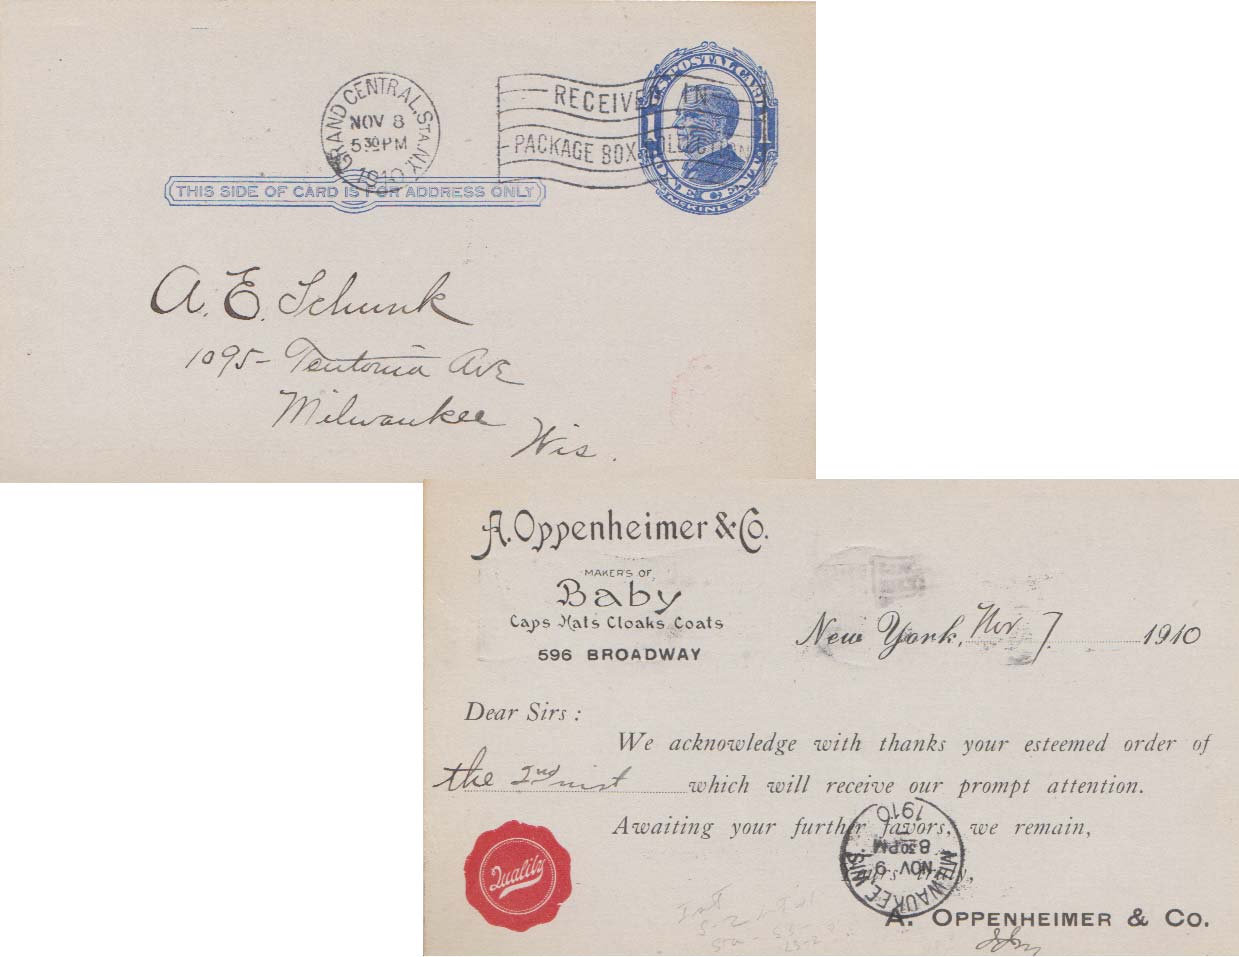 GRAND CENTRAL STA. N.Y.
NOV 8
5 30 PM
1910
RECEIVED IN
PACKAGE BOX COLLECTION
U.S. POSTAL CARD
1 1
ONE CENT
McKINLEY
THIS SIDE OF CARD IS FOR ADDRESS ONLY
A. E. Schunk
1095- Teutonia Ave
Milwaukee
Wis.
A. Oppenheimer & Co.
MAKERS OF
Baby
Caps Hats Cloaks Coats
596 BROADWAY
New York, Nov 7. 1910
Dear Sirs:
We acknowledge with thanks your esteemed order of
the 2nd inst which will receive our prompt attention.
Awaiting your further favors, we remain,
Yours truly,
A. OPPENHEIMER & CO.
Quality
MILWAUKEE, WIS.
NOV 9
8 30 PM
1910